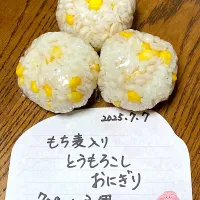 2025.7.7
もち麦入り
とうもろこし
おにぎり